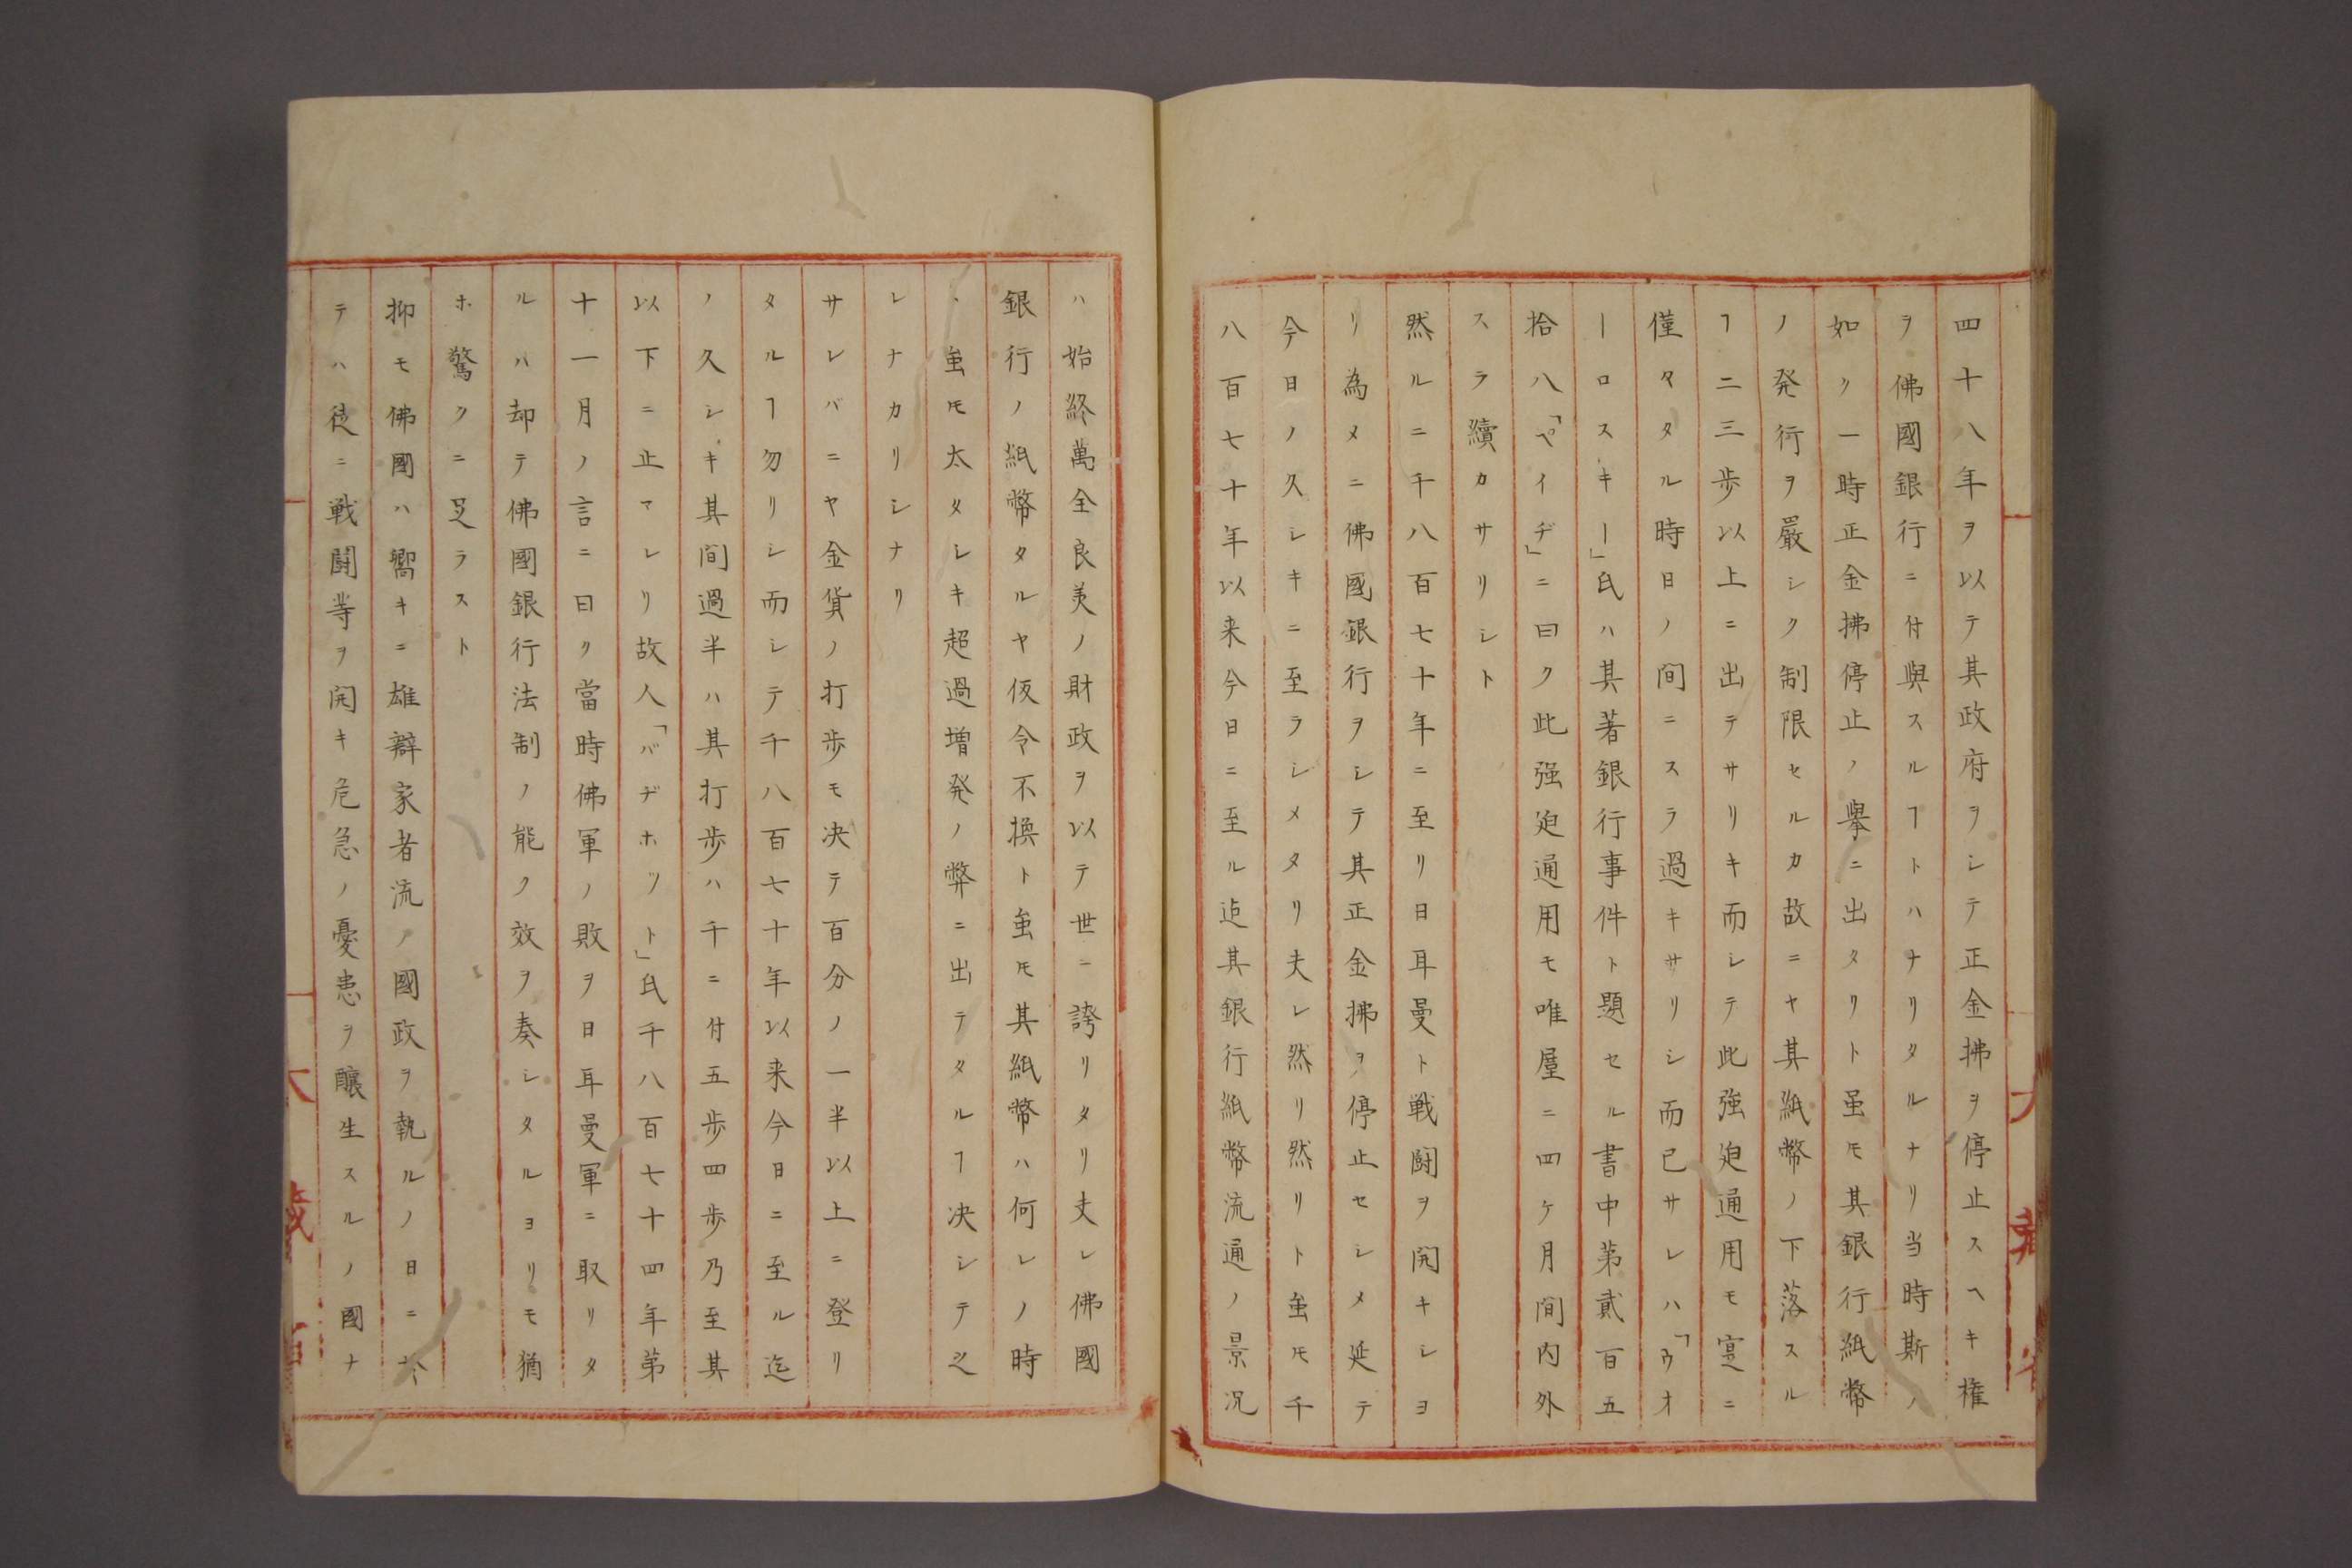 四十八年ヲ以テ其政府ヲシテ正金拂ヲ停止スヘキ権
ヲ佛國銀行ニ付與スルヿトハナリタルナリ当時斯ノ
如ク一時正金拂停止ノ擧ニ出タリト虽モ其銀行紙幣
ノ発行ヲ嚴シク制限セルカ故ニヤ其紙幣ノ下落スル
ヿ二三歩以上ニ出テサリキ而シテ此強迫通用モ寔ニ
僅々タル時日ノ間ニスラ過キサリシ而已サレハ「ウオ
ーロスキー」氏ハ其著銀行事件ト題セル書中第貳百五
拾八「ペイヂ」ニ曰ク此强迫通用モ唯屋ニ四ヶ月間内外
スラ續カサリシト
然ルニ千八百七十年ニ至リ日耳曼ト戦闘ヲ開キシヨ
リ為メニ佛國銀行ヲシテ其正金拂ヲ停止セシメ延テ
今日ノ久シキニ至ラシメタリ夫レ然リ然リト虽𪜈千
八百七十年以来今日ニ至ル迠其銀行紙幣流通ノ景况
ハ始終萬全良美ノ財政ヲ以テ世ニ誇リタリ夫レ佛國
銀行ノ紙幣タルヤ仮令不換ト虽𪜈其紙幣ハ何レノ時
ト虽𪜈太タシキ超過増発ノ弊ニ出テタルヿ决シテ之
レナカリシナリ
サレバニヤ金貨ノ打歩モ决テ百分ノ一半以上ニ登リ
タルヿ勿リシ而シテ千八百七十年以来今日ニ至ル迄
ノ久シキ其間過半ハ其打歩ハ千ニ付五歩四歩乃至其
以下ニ止マレリ故人「バヂホット」氏千八百七十四年第
十一月ノ言ニ曰ク當時佛軍ノ敗ヲ日耳曼軍ニ取リタ
ルハ却テ佛國銀行法制ノ能ク效ヲ奏シタルヨリモ猶
ホ驚クニ足ラスト
抑モ佛國ハ嚮キニ雄辯家者流ノ國政ヲ執ルノ日ニ於
テハ徒ニ戦闘等ヲ開キ危急ノ憂患ヲ釀生スルノ國ナ
大藏省
大藏省